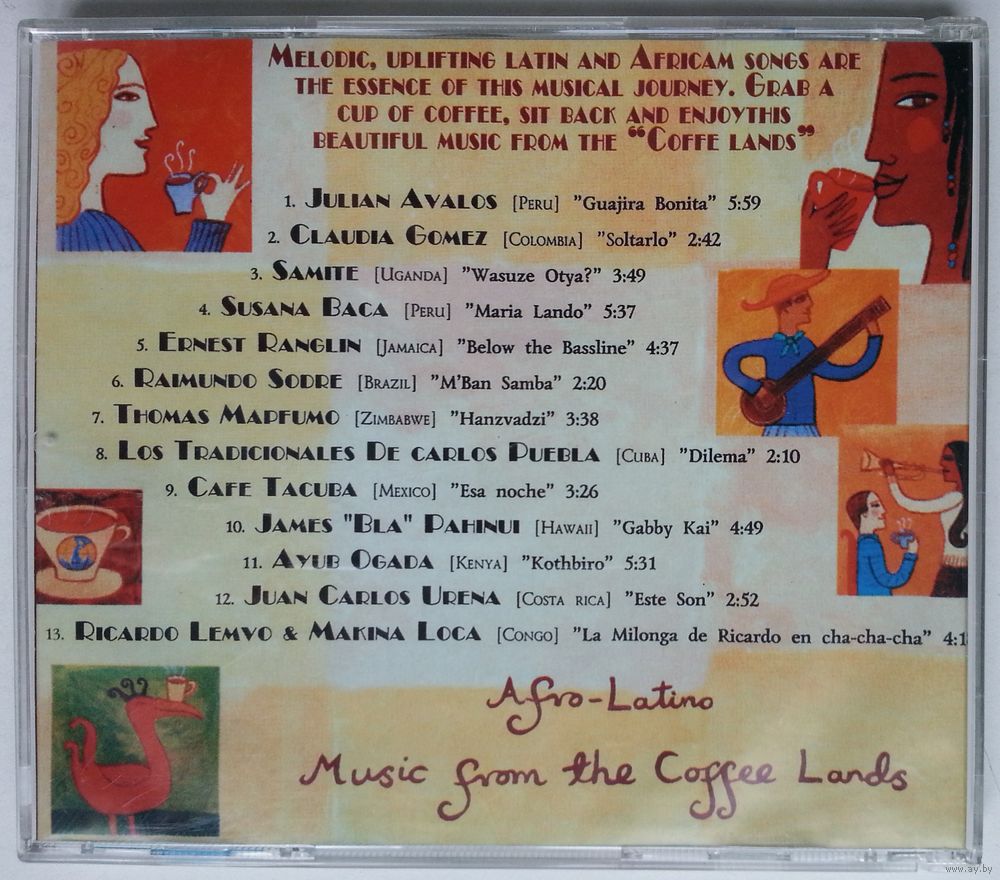 Melodic, uplifting latin and Africam songs are
the essence of this musical journey. Grab a
cup of coffee, sit back and enjoythis
beautiful music from the "Coffe lands"
1. Julian Avalos [Peru] "Guajira Bonita" 5:59
2. Claudia Gomez [Colombia] "Soltarlo" 2:42
3. Samite [Uganda] "Wasuze Otya?" 3:49
4. Susana Baca [Peru] "Maria Lando" 5:37
5. Ernest Ranglin [Jamaica] "Below the Bassline" 4:37
6. Raimundo Sodre [Brazil] "M'Ban Samba" 2:20
7. Thomas Mapfumo [Zimbabwe] "Hanzvadzi" 3:38
8. Los Tradicionales De carlos Puebla [Cuba] "Dilema" 2:10
9. Cafe Tacuba [Mexico] "Esa noche" 3:26
10. James "Bla" Pahinui [Hawaii] "Gabby Kai" 4:49
11. Ayub Ogada [Kenya] "Kothbiro" 5:31
12. Juan Carlos Urena [Costa rica] "Este Son" 2:52
13. Ricardo Lemvo & Makina Loca [Congo] "La Milonga de Ricardo en cha-cha-cha"
Afro-Latino
Music from the Coffee Lands
www.ay.by